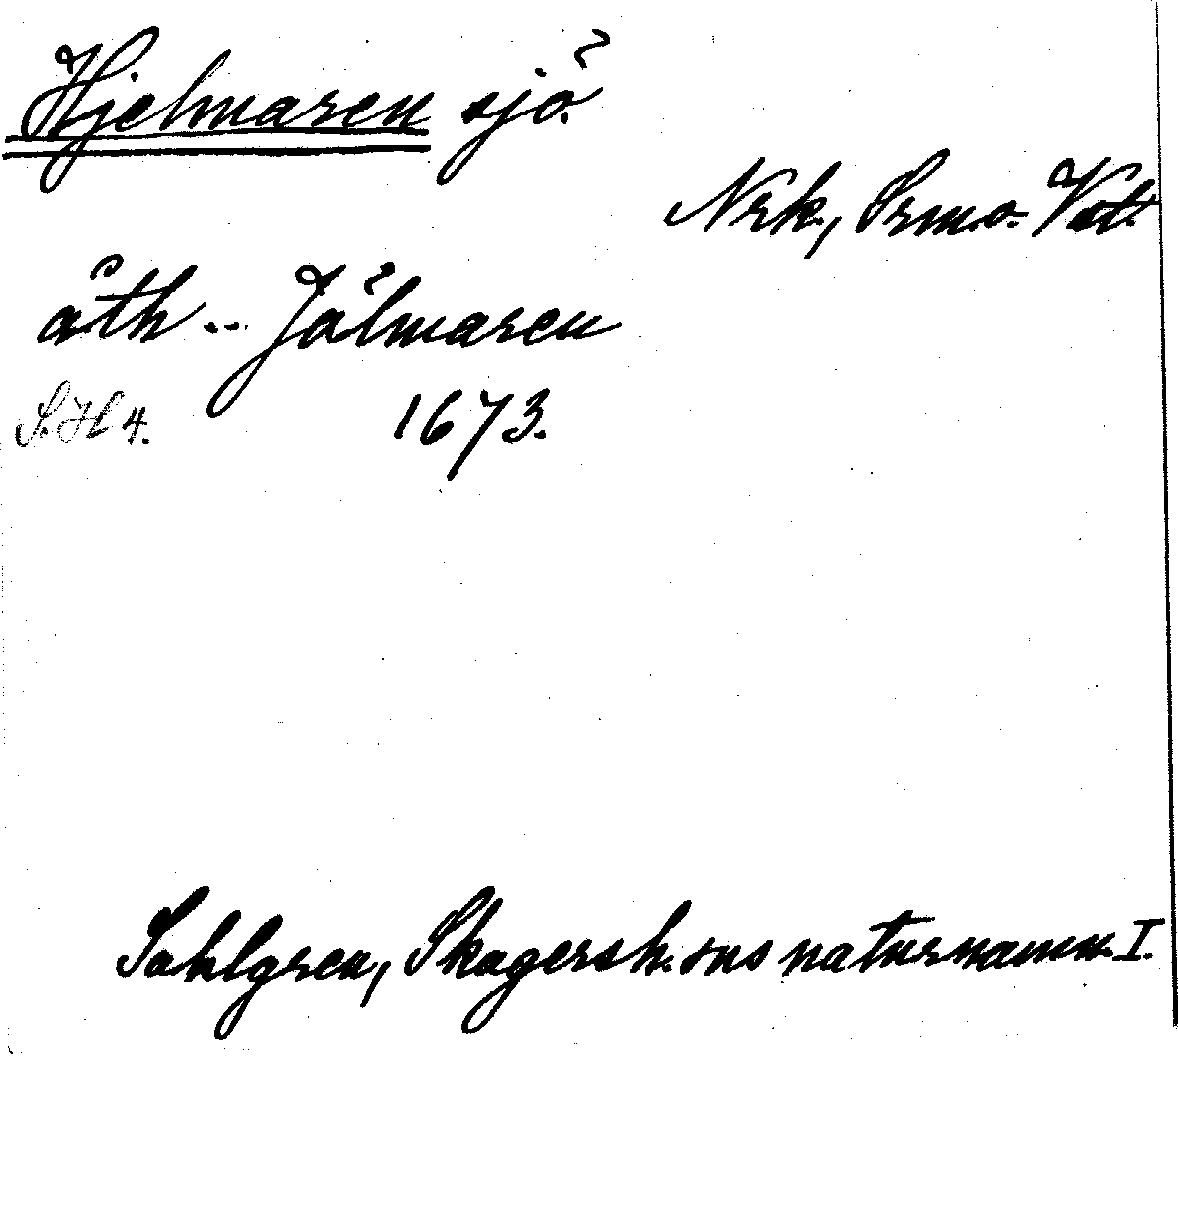 Hjelmaren sjö.
Nrk., Srm. o. Vstl.
åth .. Jälmaren
S. H 4. 1673.
Sahlgren, Skagersh. sns naturnamn. I.